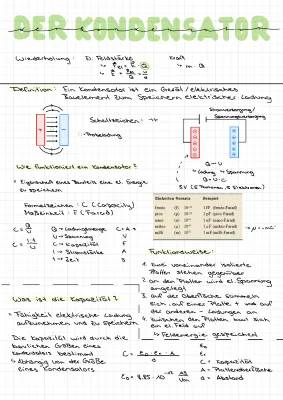 DER KONDENSATOR
Wiederholung: El. Feldstärke Kraft
Definition: Ein Kondensator ist ein Gerät / elektrisches
Bauelement zum Speichern elektrischer Ladung
Stromversorgung/
Spannungsversorgung
Schaltzeichen:
Probeladung
Wie funktioniert ein Kondensator?
Q ~ U
Ladung Spannung
Q = U · C
Eigenschaft eines Bauteils eine el. Energie
zu speichern
Formelzeichen: C (Capacity)
Maßeinheit: F (Farad)
Q = Ladungsmenge
U = Spannung
C = Kapazität
I = Stromstärke
t = Zeit
Einheiten Vorsätze Beispiel
femto (f) 10⁻¹⁵ 1 fF (femto-Farad)
pico (p) 10⁻¹² 1 pF (pico-Farad)
nano (n) 10⁻⁹ 1 nF (nano-Farad)
mikro (μ) 10⁻⁶
milli (m) 10⁻³
Funktionsweise:
1. Zwei voneinander isolierte
Platten stehen gegenüber
2. an den Platten wird el. Spannung
angelegt
3. auf der Oberfläche sammeln
sich auf einer Platte + und auf
der anderen - Ladungen an
4. zwischen den Platten baut sich
ein el. Feld auf
Feldenergie gespeichert
Was ist die Kapazität?
Fähigkeit elektrische Ladung
aufzunehmen und zu speichern
Die Kapazität wird durch die
baulichen Größen eines
Kondensators bestimmt
Abhängig von der Größe
eines Kondensators
C = Kapazität
A = Plattenoberfläche
d = Abstand